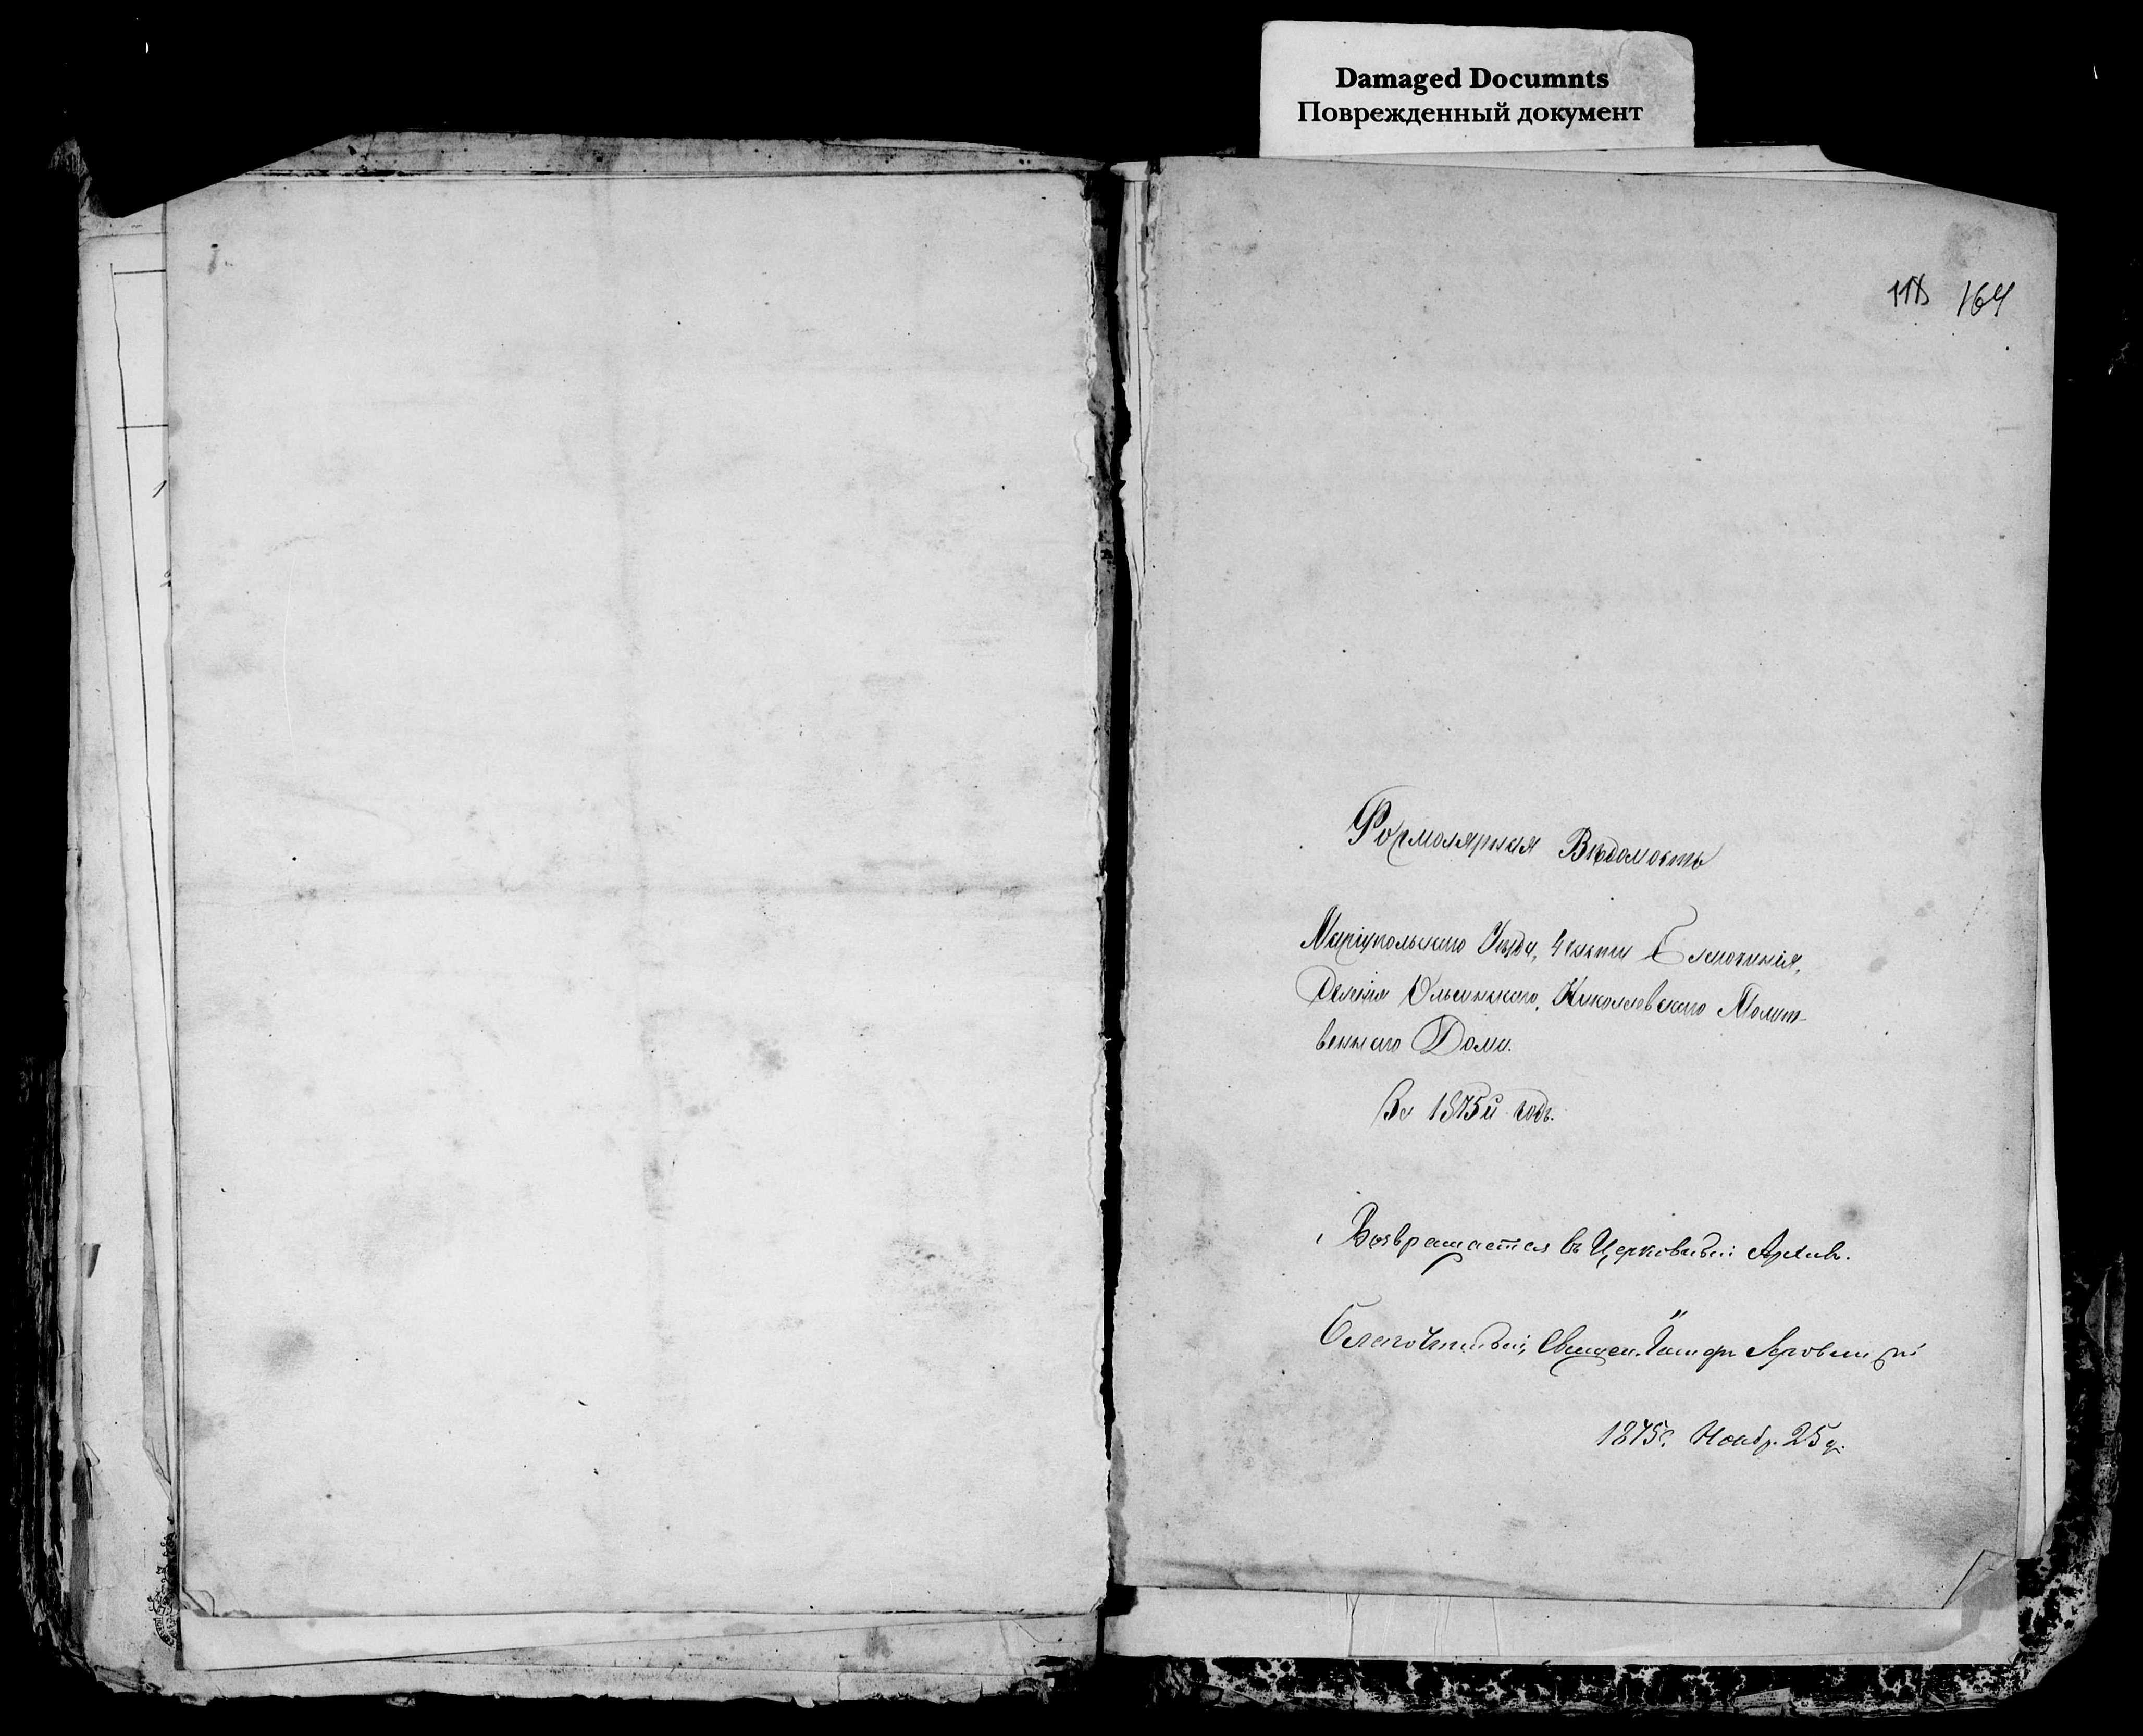 Damaged Documnts
Поврежденный документ
164
Формолярная Вѣдомость
Маріупольскаго Уѣзда, 4 части Благочинія,
Селенія Ольгинскаго, Николаевскаго Молит-
веннаго Дома.
За 1875й годъ.
Возвращается въ Церковный Архивъ.
Благочинный, Священ.
1875г. Ноябр. 25 д.